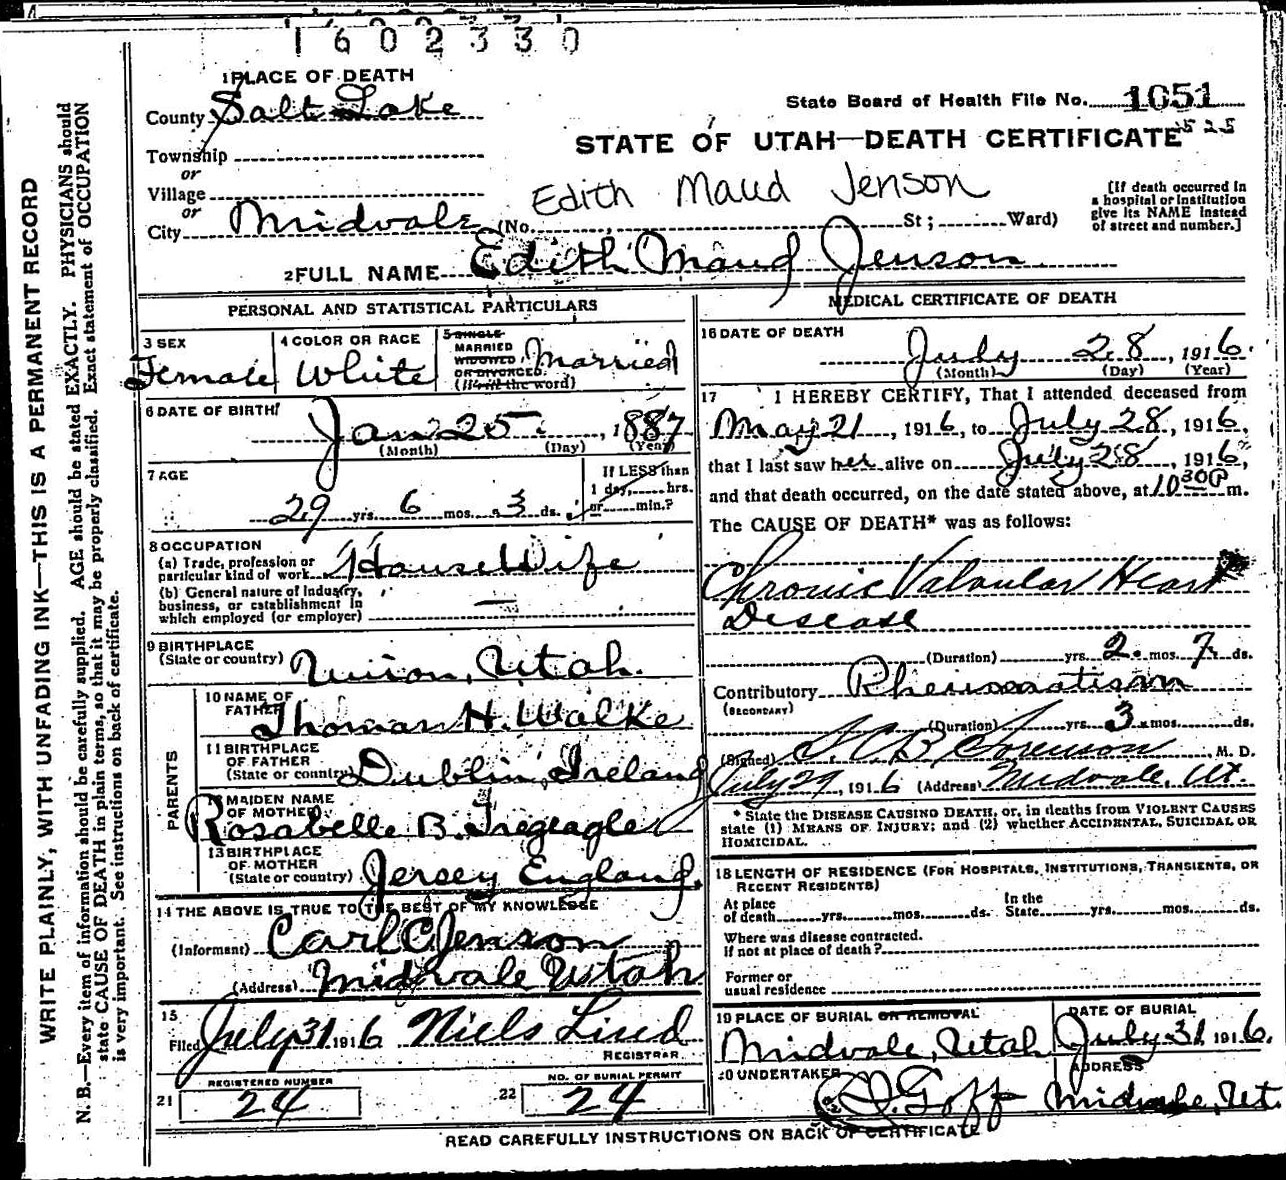 1602330
1 PLACE OF DEATH
County Salt Lake
State Board of Health File No. 1651
Township
or
STATE OF UTAH—DEATH CERTIFICATE
525
Village
or
Edith Maud Jenson
[If death occurred in
a hospital or institution
give its NAME instead
of street and number.]
City Midvale (No. St; Ward)
2 FULL NAME Edith Maud Jenson
PERSONAL AND STATISTICAL PARTICULARS
3 SEX
Female
4 COLOR OR RACE
White
5 SINGLE
MARRIED
WIDOWED
OR DIVORCED
(Write the word)
Married
6 DATE OF BIRTH
Jan 25, 1887
(Month) (Day) (Year)
7 AGE
29 yrs. 6 mos. 3 ds.
If LESS than
1 day, hrs.
or min.?
8 OCCUPATION
(a) Trade, profession or
particular kind of work House Wife
(b) General nature of Industry,
business, or establishment in
which employed (or employer) —
9 BIRTHPLACE
(State or country) Union, Utah.
PARENTS
10 NAME OF
FATHER Thomas H. Walke
11 BIRTHPLACE
OF FATHER
(State or country) Dublin, Ireland
12 MAIDEN NAME
OF MOTHER
Rosabelle B. Tregeagle
13 BIRTHPLACE
OF MOTHER
(State or country) Jersey England.
14 THE ABOVE IS TRUE TO THE BEST OF MY KNOWLEDGE
(Informant) Carl C Jenson
(Address) Midvale Utah
15
Filed July 31 1916 Niels Lind
REGISTRAR.
REGISTERED NUMBER
21 24
NO. OF BURIAL PERMIT
22 24
MEDICAL CERTIFICATE OF DEATH
16 DATE OF DEATH
July 28, 1916.
(Month) (Day) (Year)
17 I HEREBY CERTIFY, That I attended deceased from
May 21, 1916, to July 28, 1916,
that I last saw her alive on July 28, 1916,
and that death occurred, on the date stated above, at 10 30 P m.
The CAUSE OF DEATH* was as follows:
Chronic Valvular Heart
Disease
(Duration) yrs. 2. mos. 7. ds.
Contributory Rheumatism
(SECONDARY)
(Duration) yrs. 3. mos. ds.
(Signed) Sorenson M. D.
July 29, 1916 (Address) Midvale, Ut.
* State the DISEASE CAUSING DEATH, or, in deaths from VIOLENT CAUSES
state (1) MEANS OF INJURY; and (2) whether ACCIDENTAL, SUICIDAL OR
HOMICIDAL.
18 LENGTH OF RESIDENCE (FOR HOSPITALS, INSTITUTIONS, TRANSIENTS, OR
RECENT RESIDENTS)
At place
of death yrs. mos. ds.
In the
State yrs. mos. ds.
Where was disease contracted.
If not at place of death?
Former or
usual residence
19 PLACE OF BURIAL OR REMOVAL
Midvale, Utah
DATE OF BURIAL
July 31, 1916.
20 UNDERTAKER
Goff
ADDRESS
Midvale, Ut.
READ CAREFULLY INSTRUCTIONS ON BACK OF CERTIFICATE
WRITE PLAINLY, WITH UNFADING INK—THIS IS A PERMANENT RECORD
N. B.—Every item of information should be carefully supplied. AGE should be stated EXACTLY. PHYSICIANS should
state CAUSE OF DEATH in plain terms, so that it may be properly classified. Exact statement of OCCUPATION
is very important. See instructions on back of certificate.